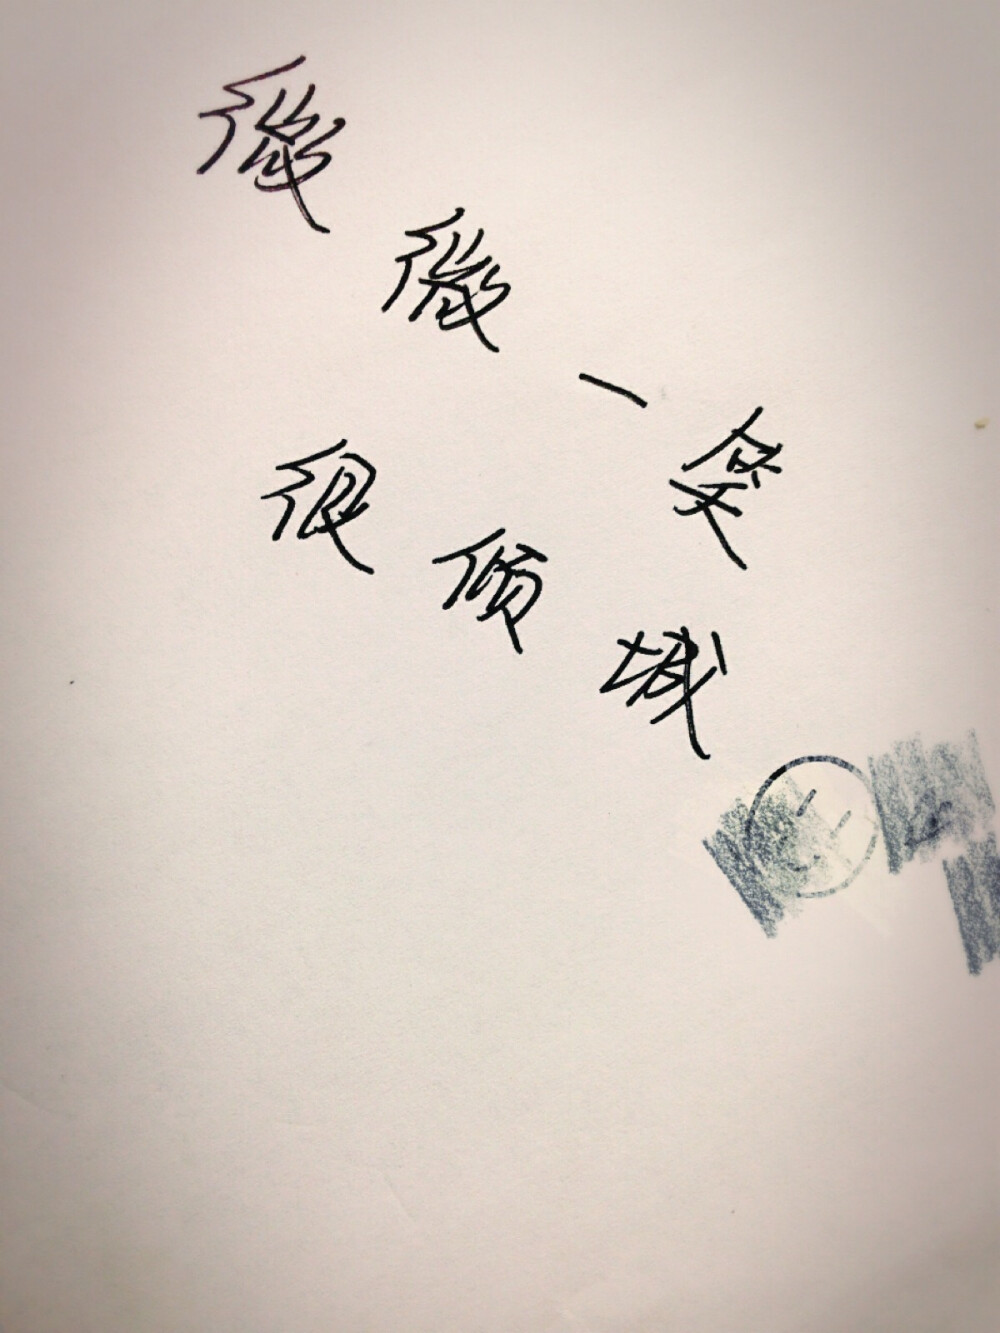 微微一笑
很倾城